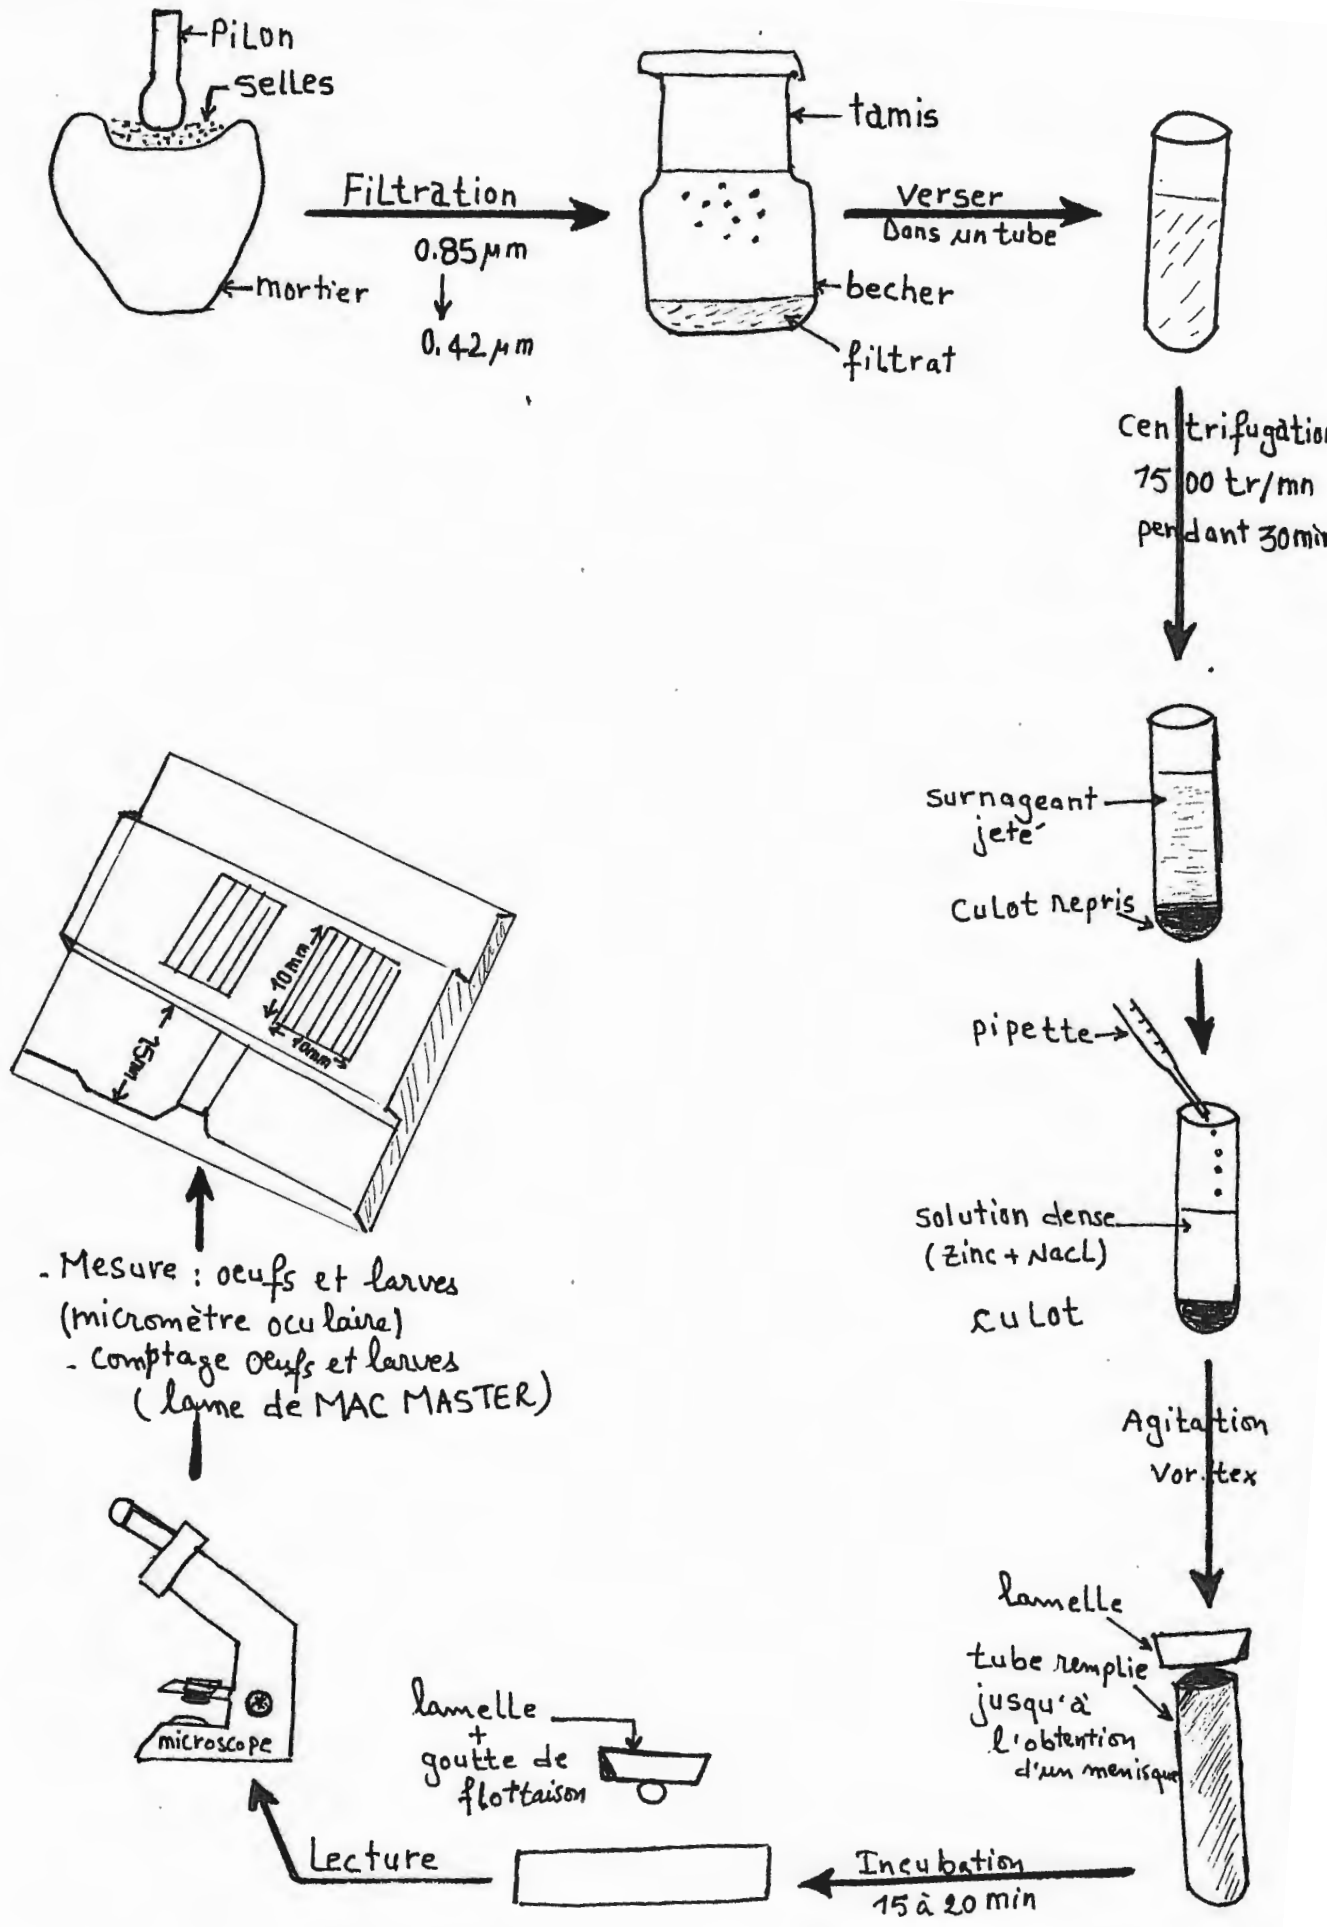 PiLon
selles
mortier
Filtration
0.85 µm
0.42 µm
tamis
becher
filtrat
verser
Dans un tube
Centrifugation
1500 tr/mn
pendant 30min
surnageant
jeté
Culot repris
pipette
solution dense
(zinc + NacL)
culot
Agitation
Vortex
lamelle
tube remplie
jusqu'à
l'obtention
d'un menisque
Incubation
15 à 20 min
lamelle
+
goutte de
flottaison
Lecture
microscope
- Mesure : oeufs et larves
(micromètre oculaire)
- comptage oeufs et larves
(lame de MAC MASTER)
10mm
10mm